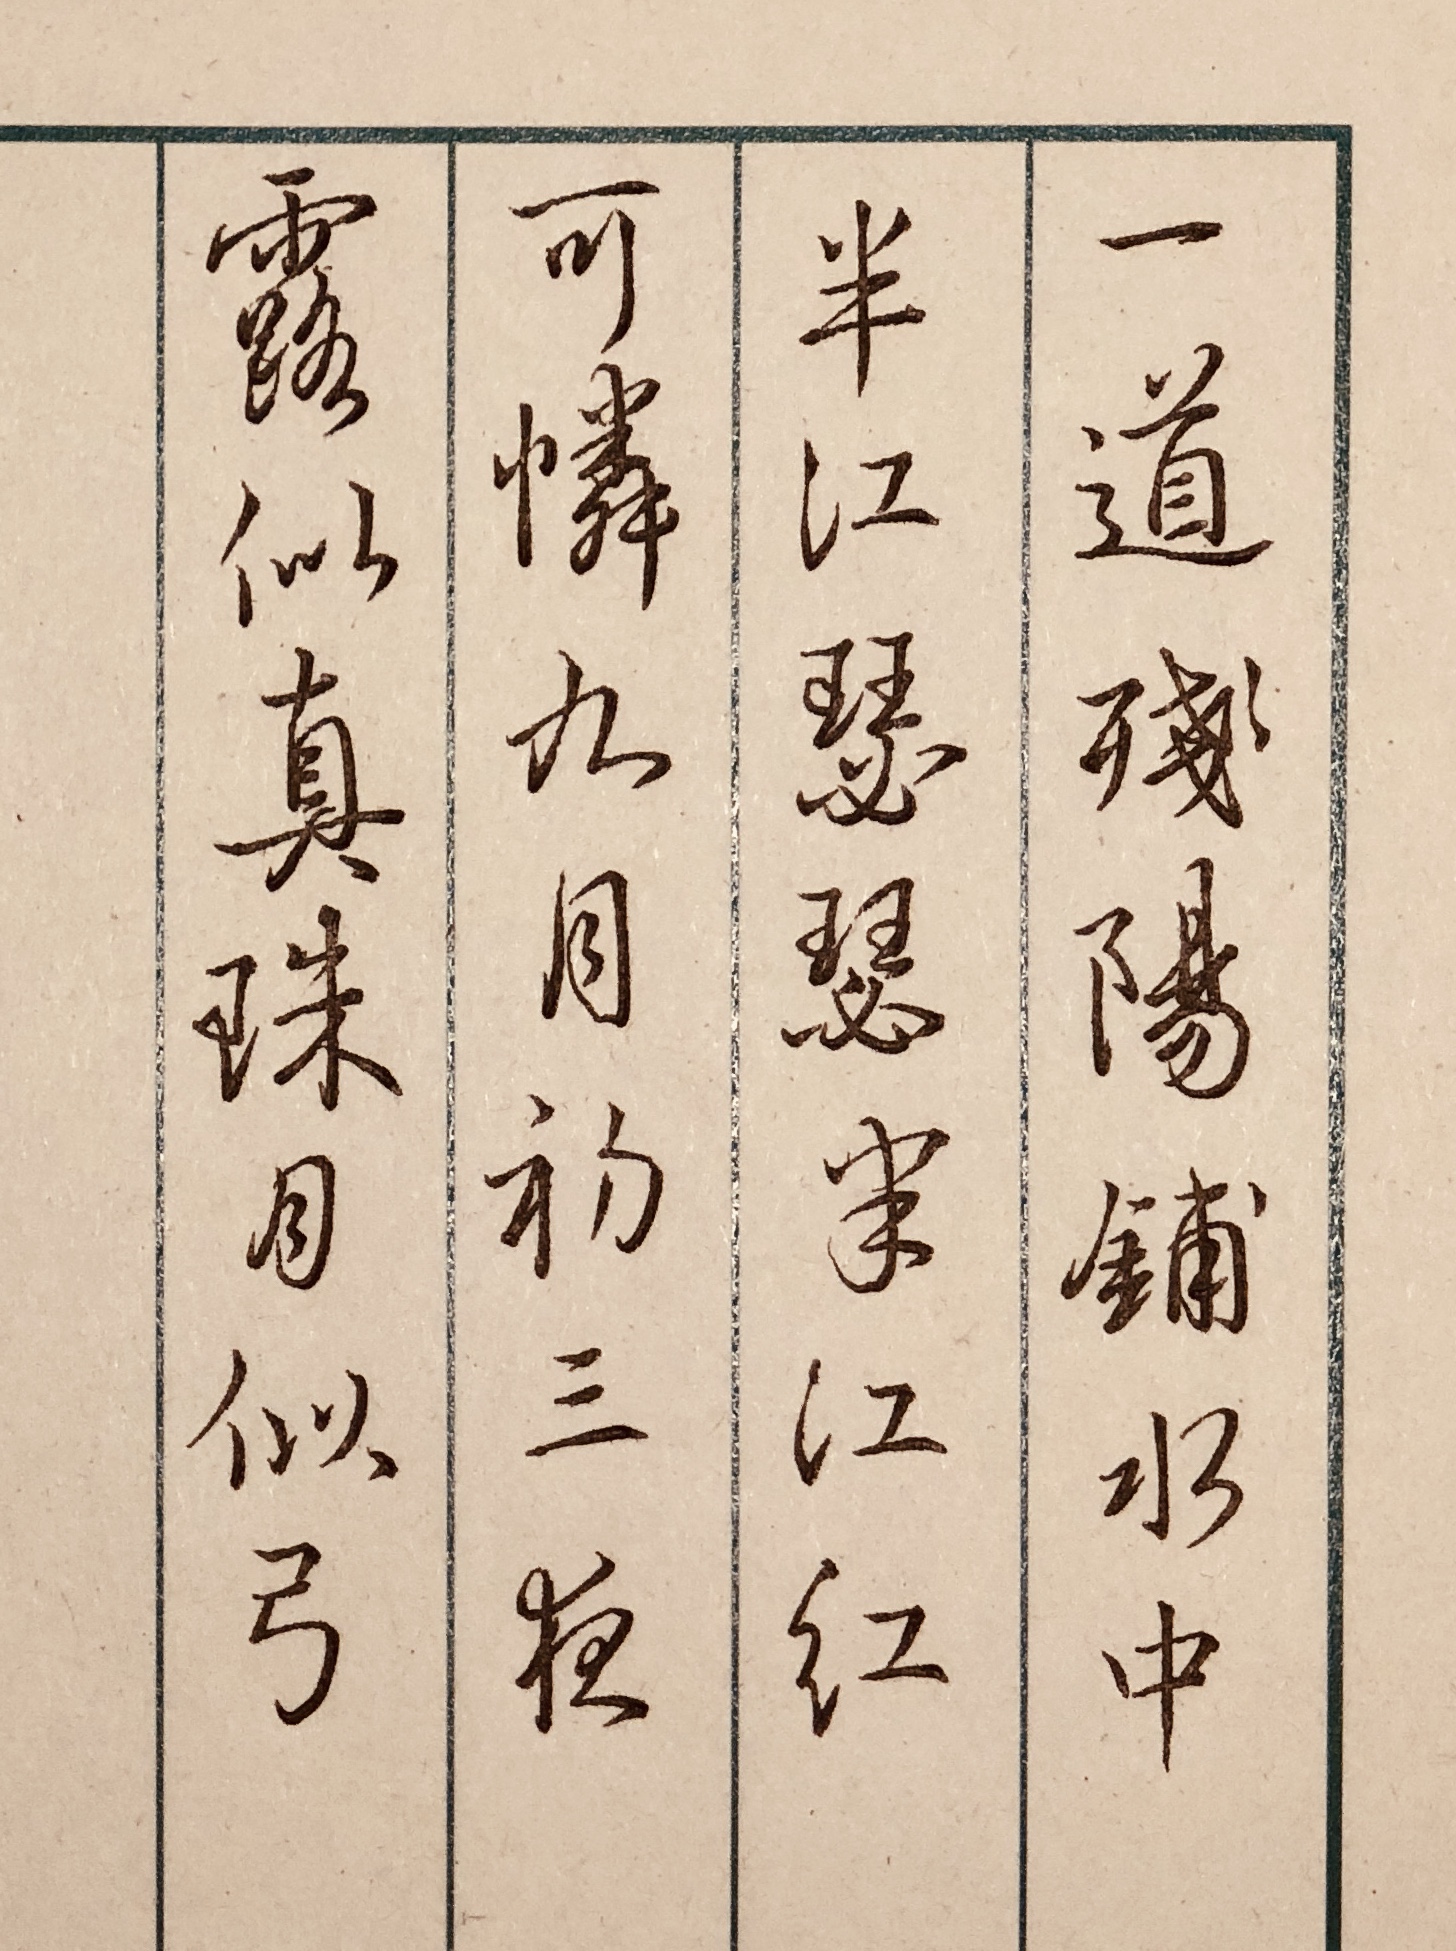 一道殘陽鋪水中
半江瑟瑟半江紅
可憐九月初三夜
露似真珠月似弓